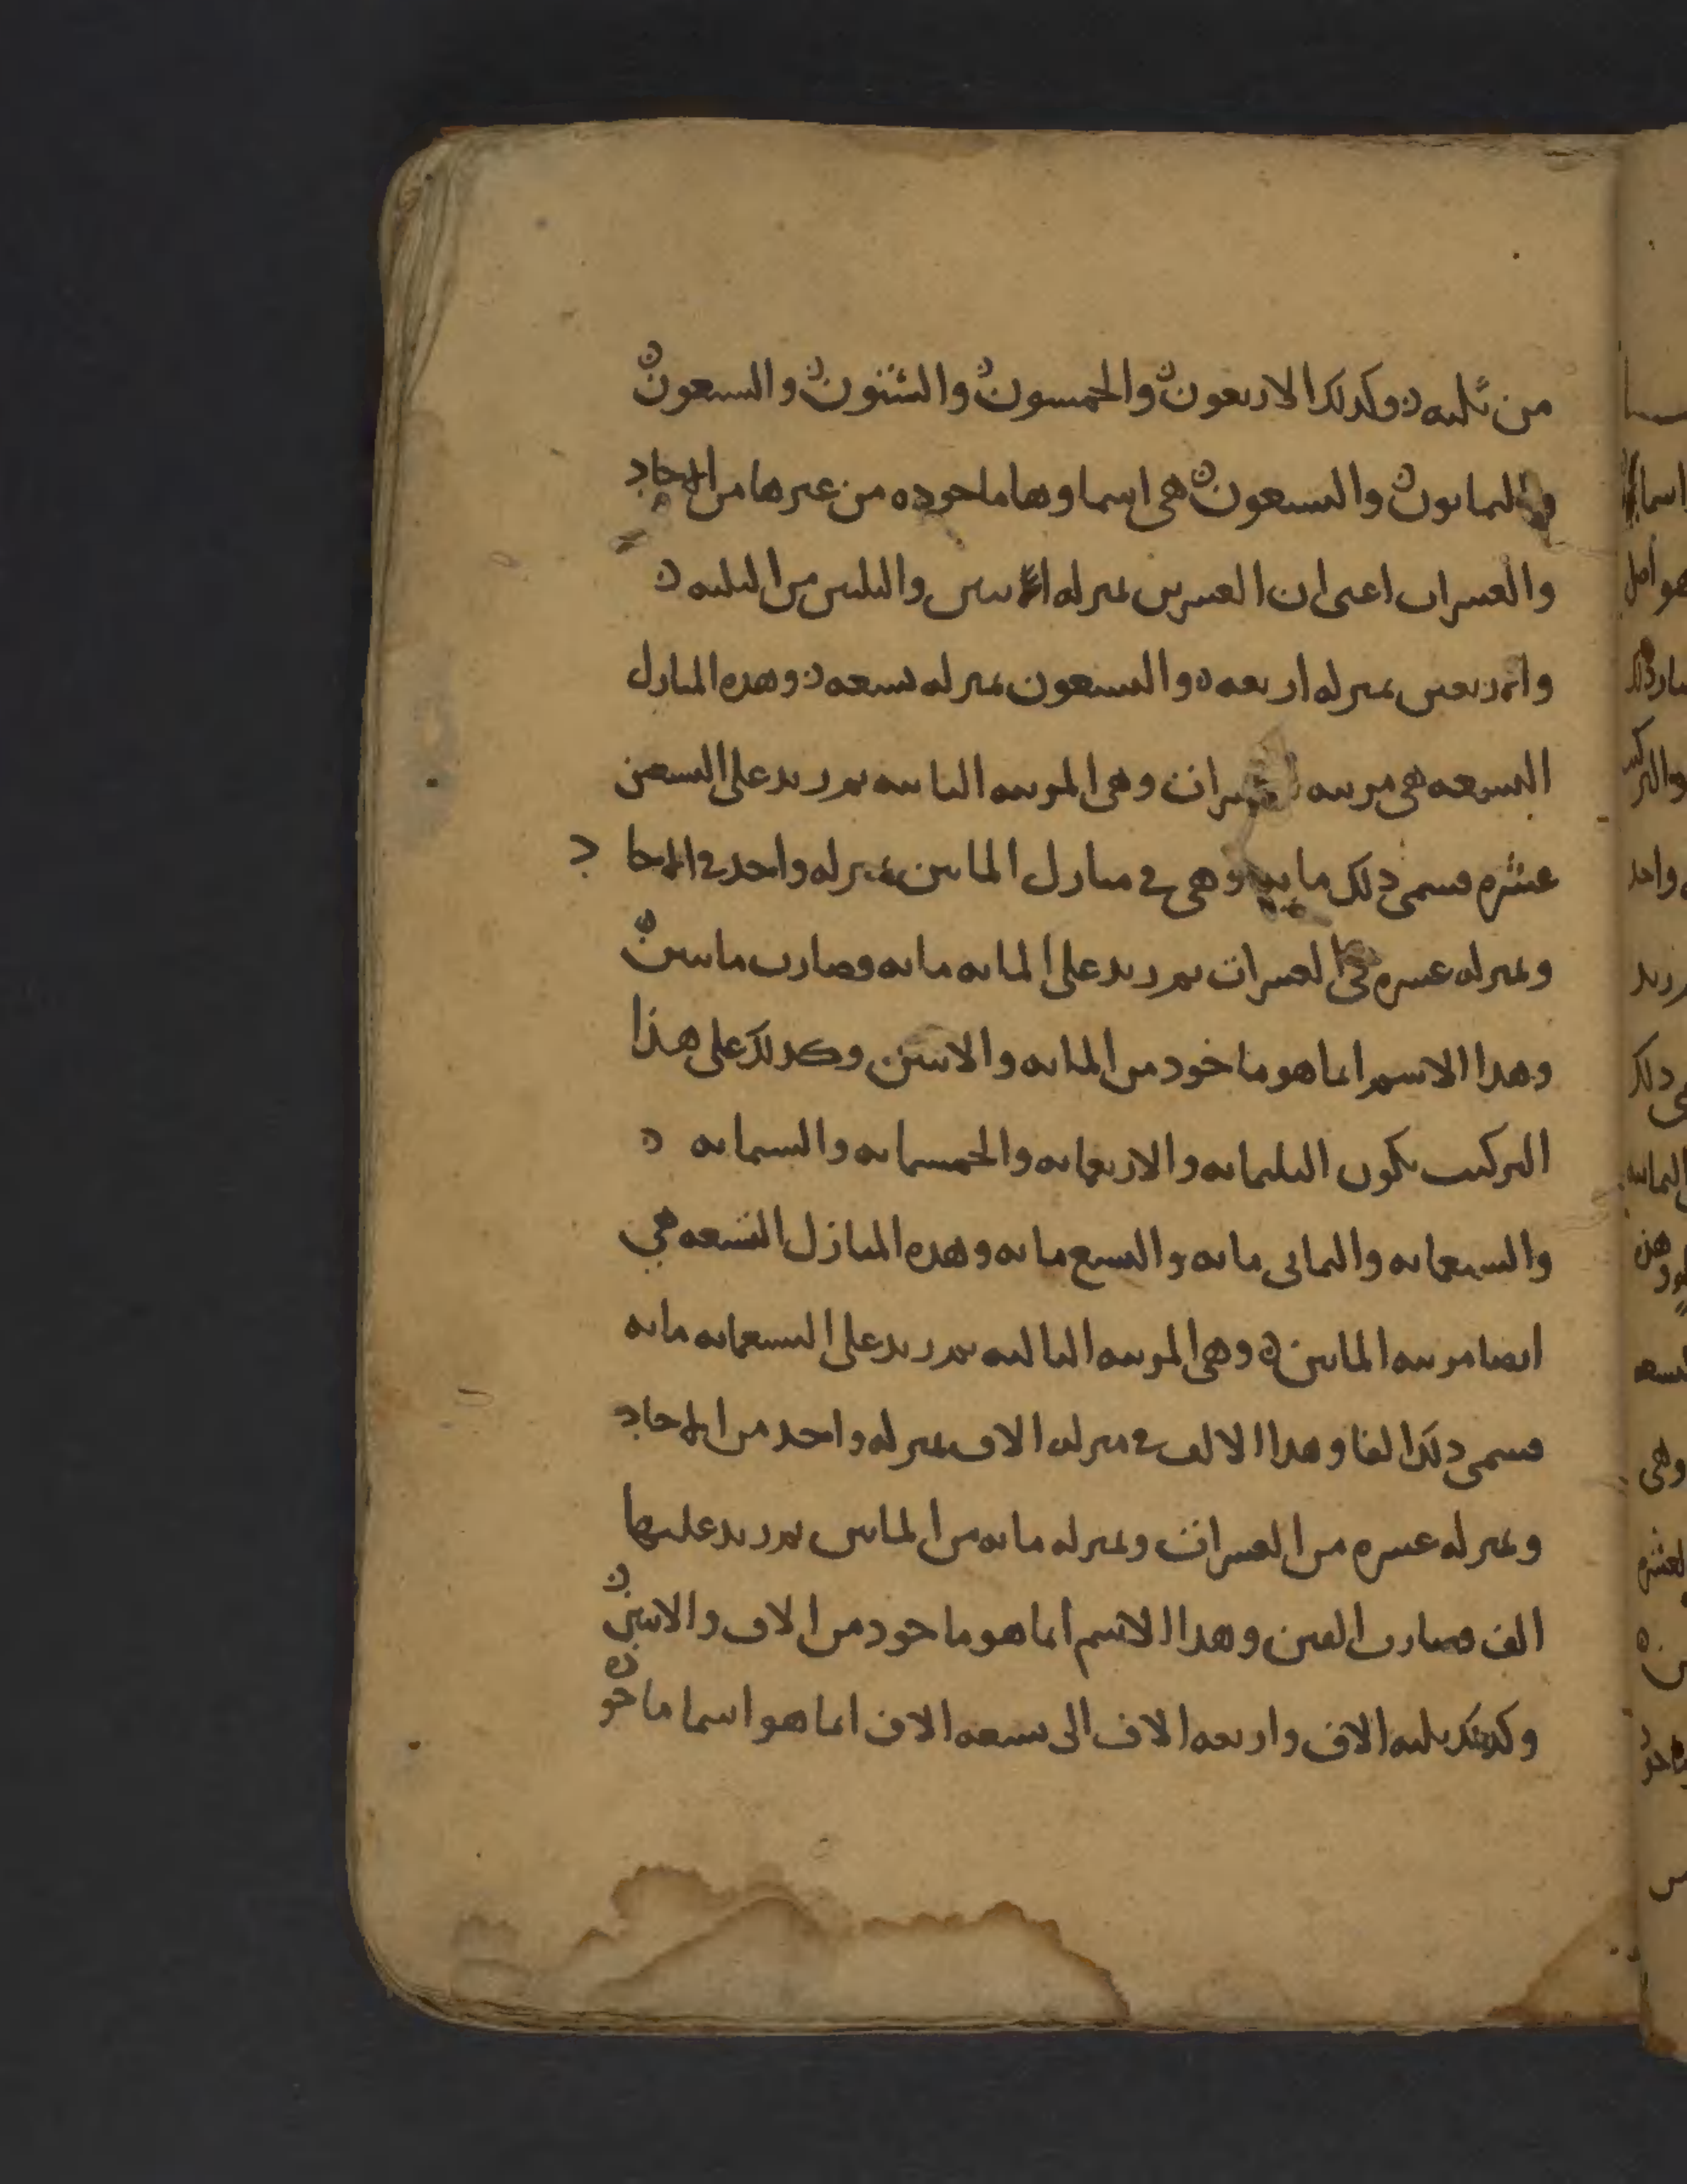 من ثلثه وكذلك الاربعون والخمسون والستون والسبعون
والثمانون والتسعون هي اسماوها ماخوذه من غيرها من الاحاد
والعشرات اعني ان العشرين بمنزله اثنين والثلثين من الثلثه
والاربعين بمنزله اربعه والتسعون بمنزله تسعه وهذه المنازل
التسعه هي مرتبه العشرات وهي المرتبه الثانيه ثم زيد على التسعين
عشره فسمى ذلك مايه وهي في منازل المايين بمنزله واحد في الاحاد
وبمنزله عشره في العشرات ثم زيد على المايه مايه فصارت مايتين
وهذا الاسم انما هو ماخوذ من المايه والاثنين وكذلك على هذا
التركيب يكون الثلثمايه والاربعمايه والخمسمايه والستمايه
والسبعمايه والثماني مايه والتسع مايه وهذه المنازل التسعه هي
ايضا مرتبه المايين وهي المرتبه الثالثه ثم زيد على التسعمايه مايه
فسمى ذلك الفا وهذا الالف في منزله الالاف بمنزله واحد من الاحاد
وبمنزله عشره من العشرات وبمنزله مايه من المايين ثم زيد عليها
الف فصارت الفين وهذا الاسم انما هو ماخوذ من الالاف والاثنين
وكذلك ثلثه الالاف واربعه الالاف الى تسعه الالاف انما هو اسما ماخوذه